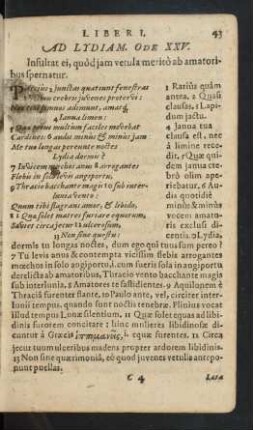 LIBER I. 43
AD LYDIAM. ODE XXV.
Insultat ei, quòd jam vetula meritò ab amatori-
bus spernatur.
Parcius 2 junctas quatiunt fenestras
crebris juvenes protervi:
Nec tibi somnos adimunt, amatque
4 Janua limen:
5 Quæ prius multum faciles movebat
Cardines: 6 audis minùs & minùs jam
Me tuo longas pereunte noctes
Lydia dormis?
7 Invicem mœchos anus 8 arrogantes
Flebis in solo levis angiportu,
9 Thracio bacchante magis 10 sub inter-
lunia vento:
Quum tibi flagrans amor, & libido,
11 Quæ solet matres furiare equorum,
Sæviet circa jecur 12 ulcerosum,
13 Non sine questu:
1 Rariùs quàm
antea. 2 Quasi
clausas. 3 Lapi-
dum jactu.
4 Janua tua
clausa est, nec
à limine rece-
dit. 5 Quæ qui-
dem janua cre-
brò olim ape-
riebatur. 6 Au-
dis quotidie
minùs & minùs
vocem amato-
ris exclusi di-
centis. o Lydia,
dormis tu longas noctes, dum ego qui tuus sum pereo?
7 Tu levis anus & contempta vicissim flebis arrogantes
mœchos in solo angiportu, cum fueris sola in angiportu
derelicta ab amatoribus, Thracio vento bacchante magis
sub interlunia. 8 Amatores te fastidientes. 9 Aquilonem è
Thraciâ furenter flante. 10 Paulo ante, vel, circiter inter-
lunii tempus, quando sunt noctes tenebræ. Plinius vocat
illud tempus Lunæ silentium. 11 Quæ solet equas ad libi-
dinis furorem concitare: hinc mulieres libidinosæ di-
cuntur à Græcis ἱππομανεῖς, i. equæ furentes. 12 Circa
jecur tuum ulceribus madens propter ardorem libidinis.
13 Non sine quærimoniâ, eò quod juvenes vetulis antepo-
nunt puellas.
C 4